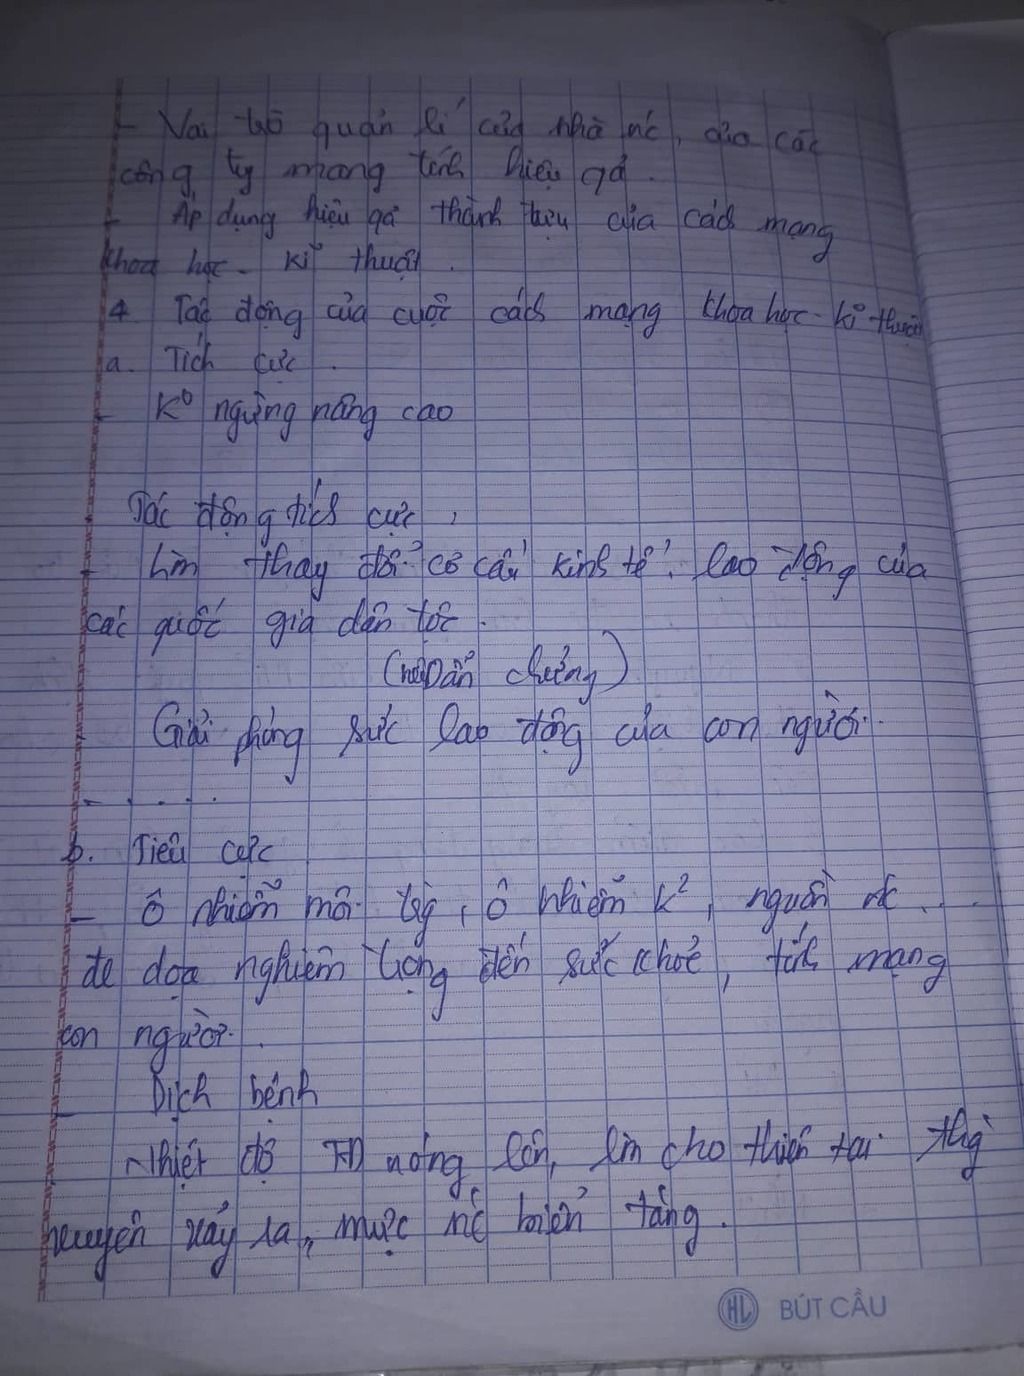 - Vai trò quản lí của nhà nc, của các
công ty mang tính hiệu qả.
- Áp dụng hiệu qả thành tựu của cách mạng
khoa học - kĩ thuật.
4 Tác động của cuộc cách mạng khoa học - kĩ thuật
a. Tích cực.
- K⁰ ngừng nâng cao
Tác động tích cực,
- Lm thay đổi cơ cấu kinh tế. lao động của
các quốc gia dân tộc.
(Dẫn chứng)
- Giải phóng sức lao động của con người.
- . . . .
b. Tiêu cực
- Ô nhiễm môi trg, ô nhiễm k², nguồn nc....
đe dọa nghiêm trọng đến sức khoẻ, tính mạng
con người.
- Dịch bệnh
Nhiệt độ TĐ nóng lên, lm cho thiên tai thg
xuyên xảy ra, mực nc biển tăng.
HL BÚT CẦU